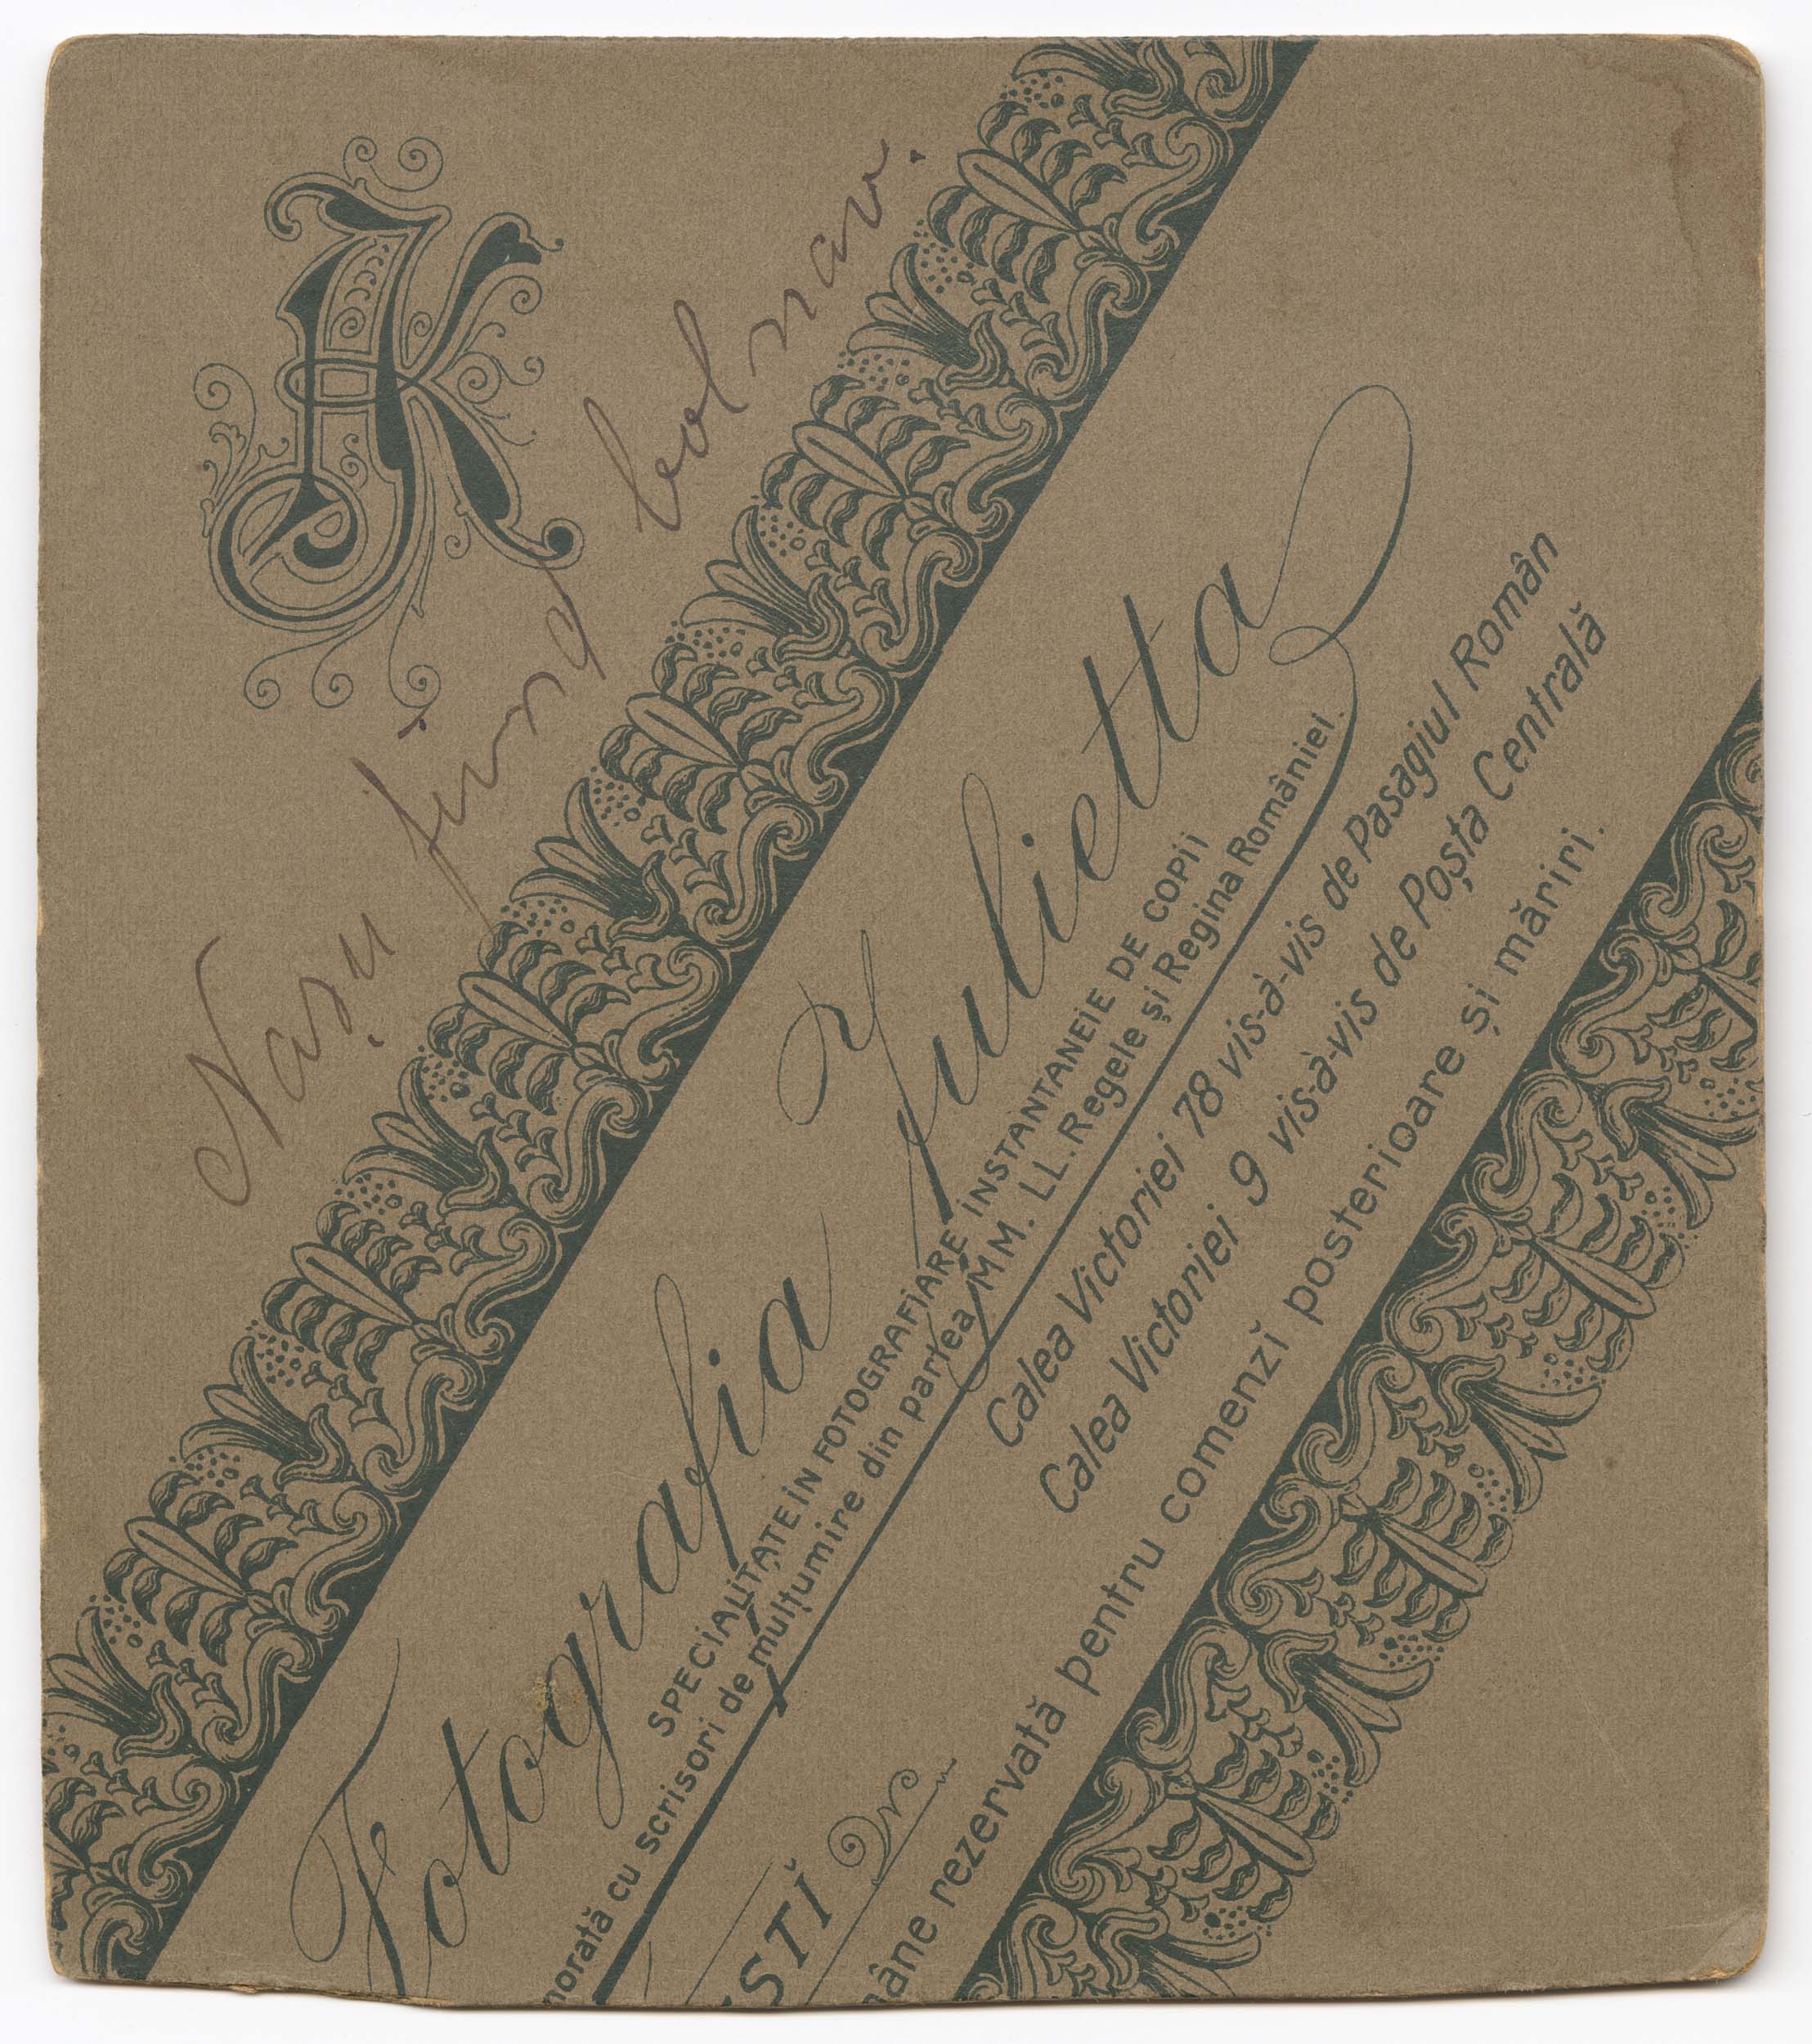 JK
Nașu fiind bolnav.
Fotografia Julietta
SPECIALITATE IN FOTOGRAFIARE INSTANTANEIE DE COPII
norată cu scrisori de mulțumire din partea MM. LL. Regele și Regina României.
Calea Victoriei 78 vis-à-vis de Pasagiul Român
STĬ Calea Victoriei 9 vis-à-vis de Poșta Centrală
âne rezervată pentru comenzĭ posterioare și măriri.